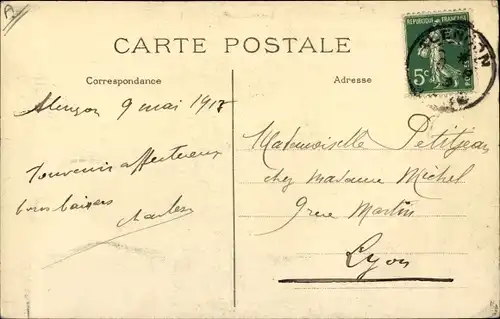 CARTE POSTALE
Correspondance
Adresse
RÉPUBLIQUE FRANÇAISE
5c
ALENÇON
Alençon 9 mai 1917
Souvenir affectueux
bons baisers
Charles
Mademoiselle Petitjean
chez Madame Michel
9 rue Martin
Lyon